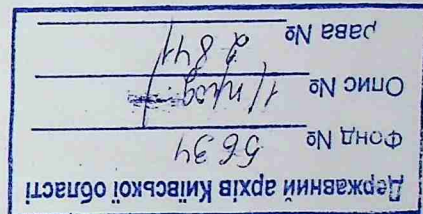 Державний архів Київської області
Фонд № 5634
Опис № 1/прод
рава № 2841